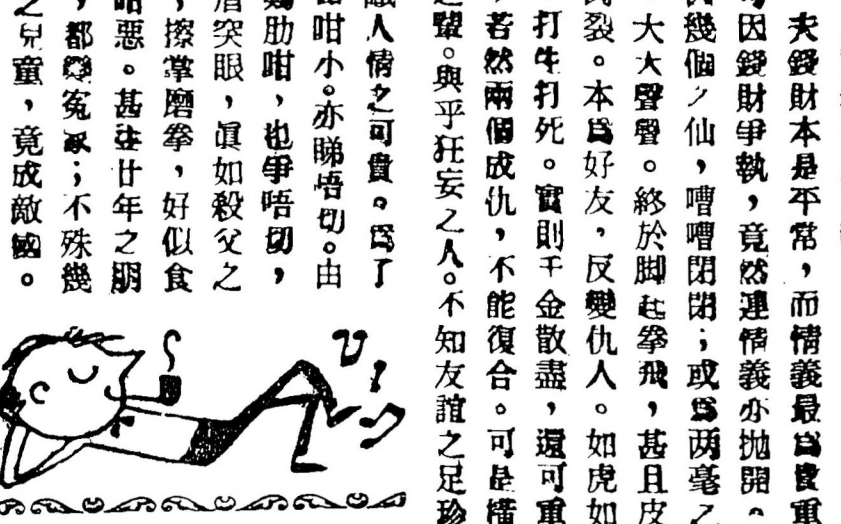 夫錢財本是平常，而情義最為貴重
因錢財爭執，竟然連情義亦抛開。
幾個仙，嘈嘈閉閉；或為两毫之
大大聲聲。終於脚起拳飛，甚且皮
裂。本為好友，反變仇人。如虎如
打生打死。實則千金散盡，還可重
若然兩個成仇，不能復合。可是橫
之輩。與乎狂妄之人。不知友誼之足珍
識人情之可貴。為了
咁小。亦睇唔切。由
肋咁，也爭唔切，
突眼，眞如殺父之
，擦掌磨拳，好似食
咁惡。甚至廿年之朋
，都變冤家；不殊幾
之兒童，竟成敵國。